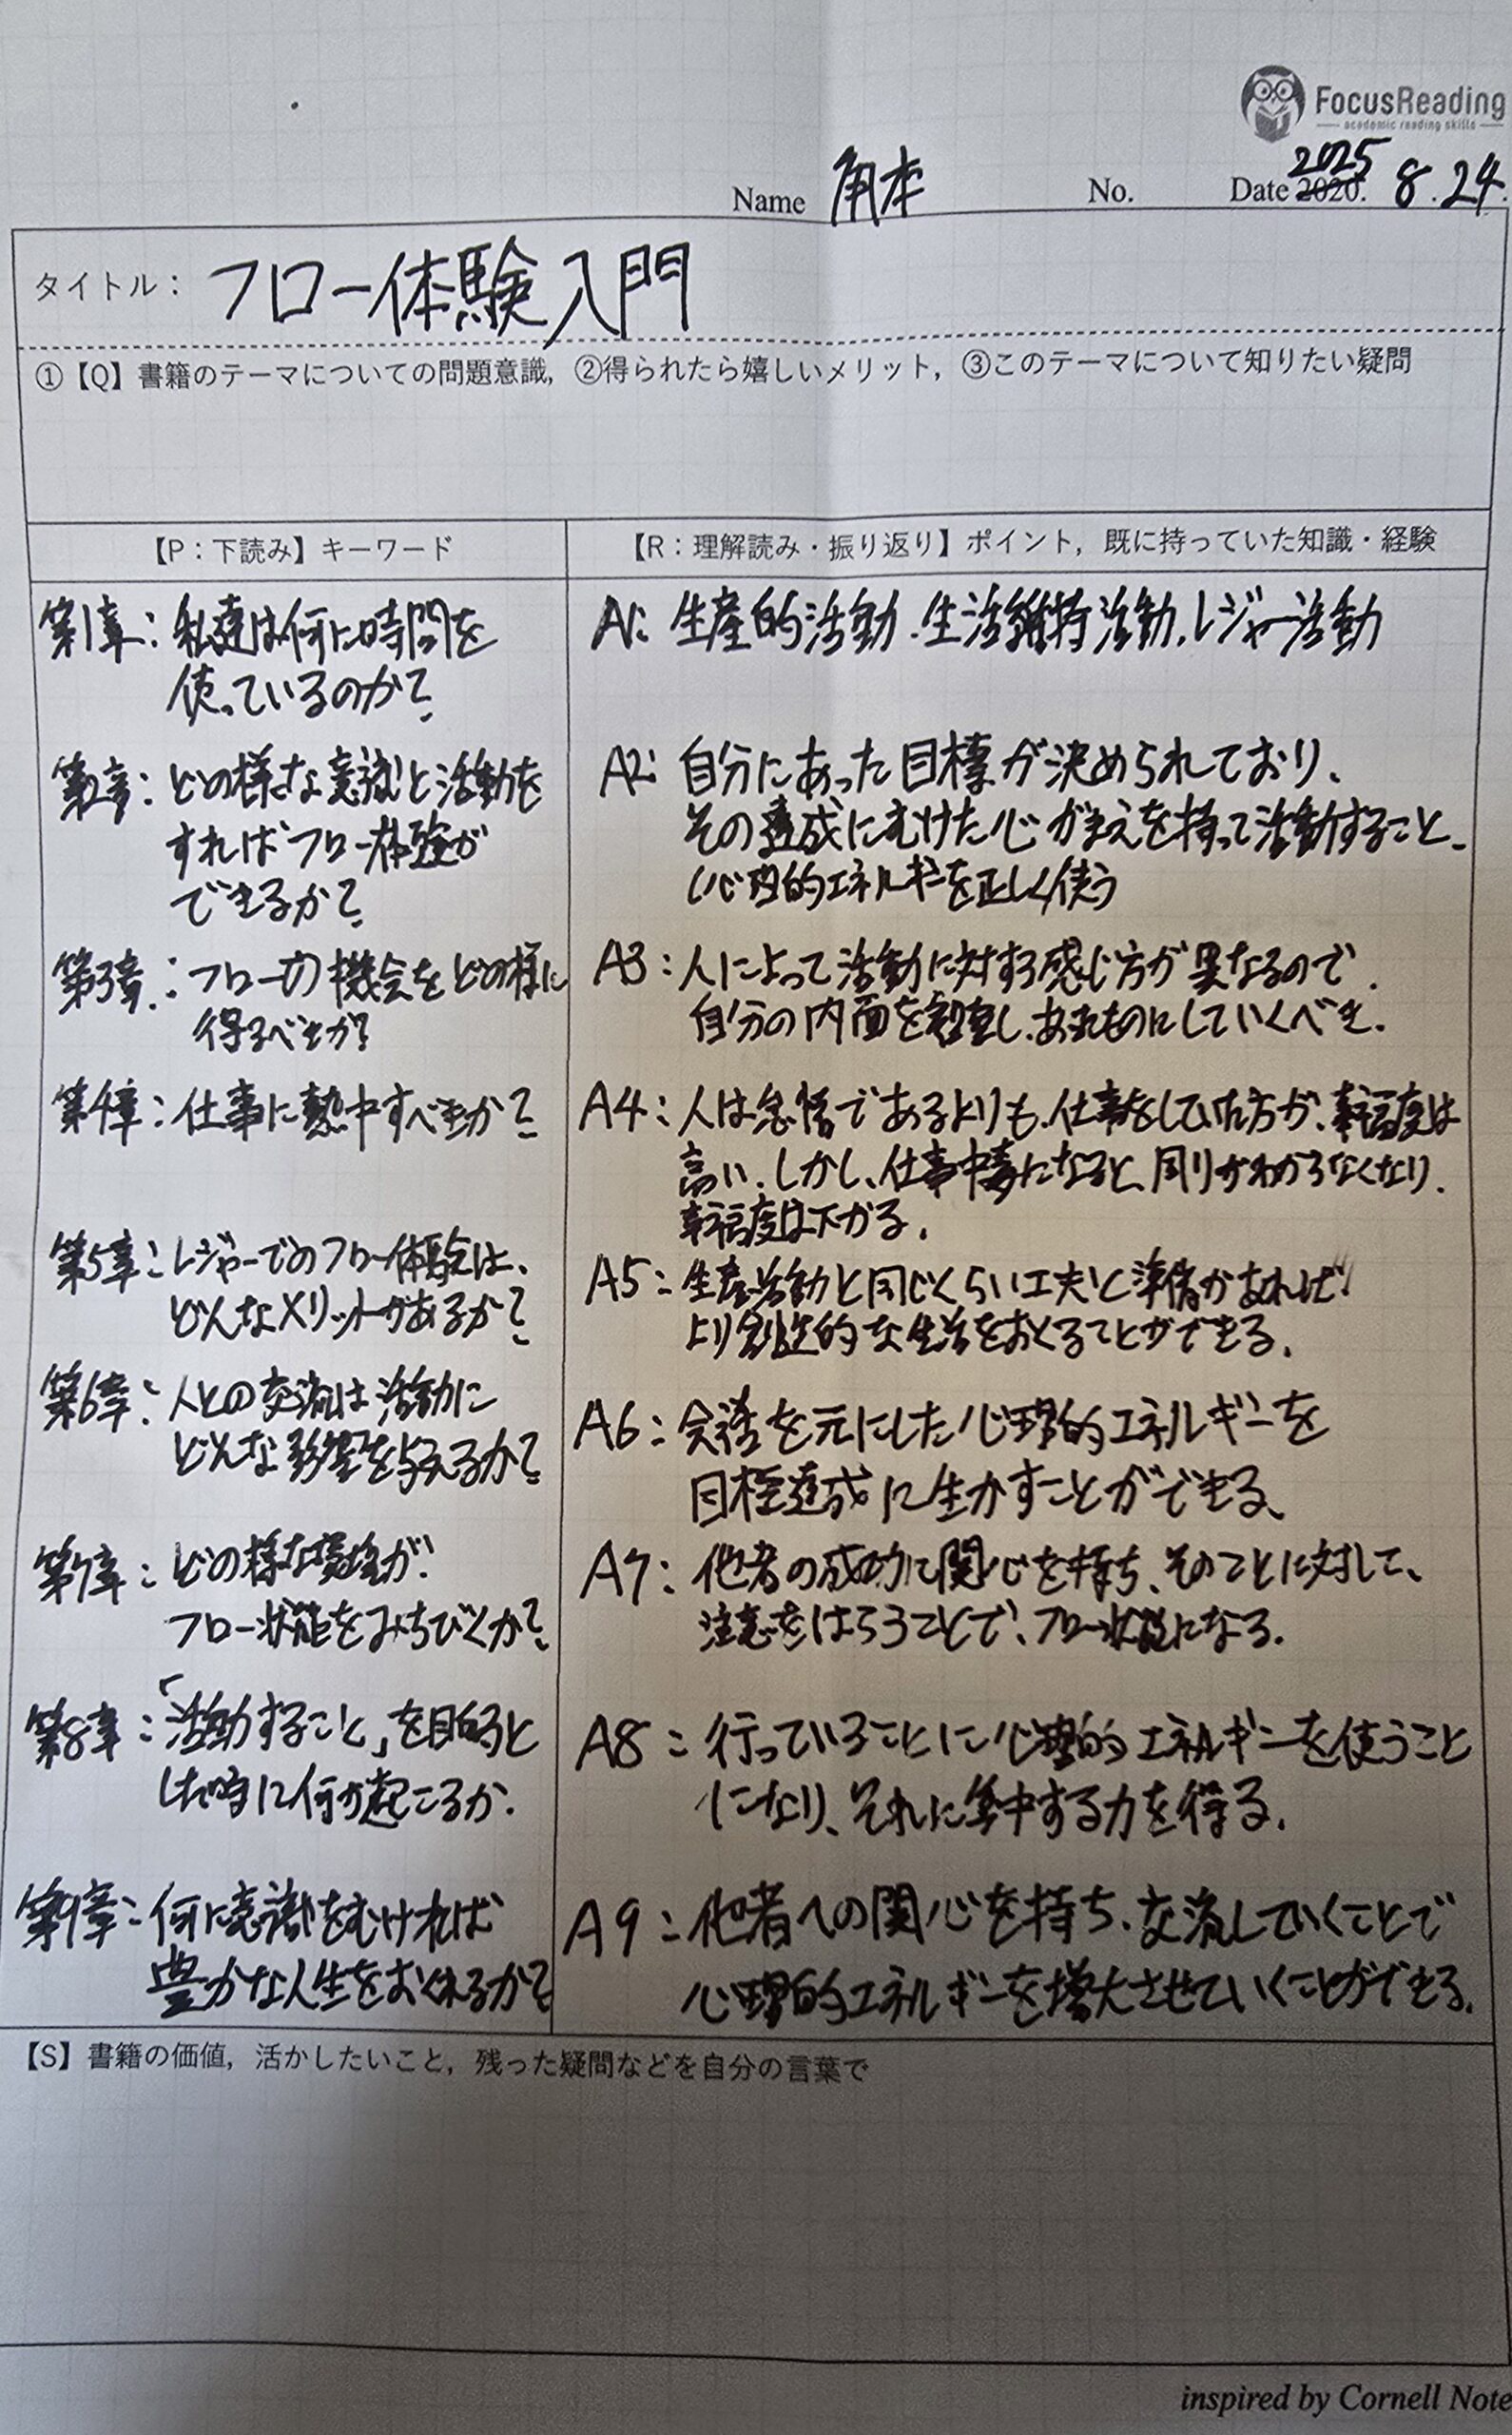 FocusReading
academic reading skills
Name 角本 No. Date 2020. 2025 8.24.
タイトル： フロー体験入門
①【Q】書籍のテーマについての問題意識，②得られたら嬉しいメリット，③このテーマについて知りたい疑問
【P：下読み】キーワード
【R：理解読み・振り返り】ポイント，既に持っていた知識・経験
第1章：私達は何に時間を
使っているのか？
A1：生産的活動、生活維持活動、レジャー活動
第2章：どの様な意識と活動を
すればフロー体験が
できるか？
A2：自分にあった目標が決められており、
その達成にむけた心がまえを持って活動すること。
心理的エネルギーを正しく使う
第3章：フローの機会をどの様に
得るべきか？
A3：人によって活動に対する感じ方が異なるので、
自分の内面を し、 ものにしていくべき。
第4章：仕事に熱中すべきか？
A4：人は怠惰であるよりも、仕事をしていた方が、幸福度は
高い、しかし、仕事中毒になると、周りがわからなくなり、
幸福度は下がる。
第5章：レジャーでのフロー体験は、
どんなメリットがあるか？
A5：生産活動と同じくらい工夫と準備があれば、
より創造的な生活をおくることができる。
第6章：人との交流は活動に
どんな影響を与えるか？
A6：会話を元にした心理的エネルギーを
目標達成に生かすことができる、
第7章：どの様な環境が、
フロー状態をみちびくか？
A7：他者の成功に関心を持ち、そのことに対して、
注意をはらうことで、フロー状態になる。
第8章：「活動すること」を目的と
した時に何が起こるか。
A8：行っていることに心理的エネルギーを使うこと
になり、それに集中する力を得る。
第9章：何に意識をむければ
豊かな人生をおくれるか？
A9：他者への関心を持ち、交流していくことで
心理的エネルギーを増大させていくことができる。
【S】書籍の価値，活かしたいこと，残った疑問などを自分の言葉で
inspired by Cornell Note